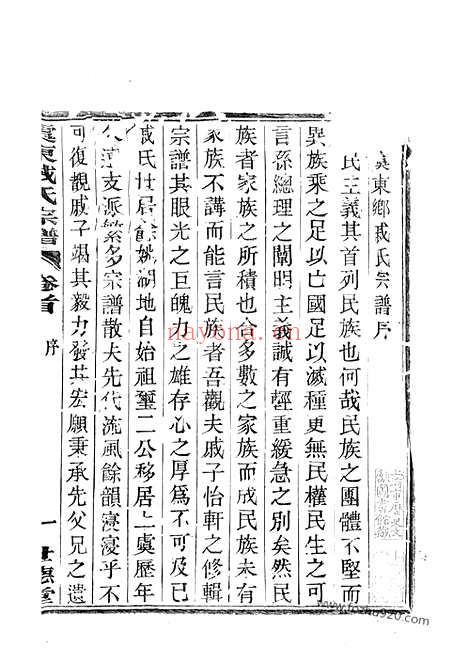 東鄉戚氏宗譜序
民主義其首列民族也何哉民族之團體不堅而
異族乘之足以亡國足以滅種更無民權民生之可
言孫總理之闡明主義誠有輕重緩急之別矣然民
族者家族之所積也合多數之家族而成民族未有
家族不講而能言民族者吾觀夫戚子怡軒之修輯
宗譜其眼光之巨魄力之雄存心之厚爲不可及已
戚氏世居餘姚湖地自始祖璽二公移居上虞歷年
久遠支派繁多宗譜散失先代流風餘韻寖寖乎不
可復覩戚子竭其毅力發其宏願秉承先父兄之遺
東戚氏宗譜
卷首
序
一
世德堂
nayona.cn
www.fozhu920.com